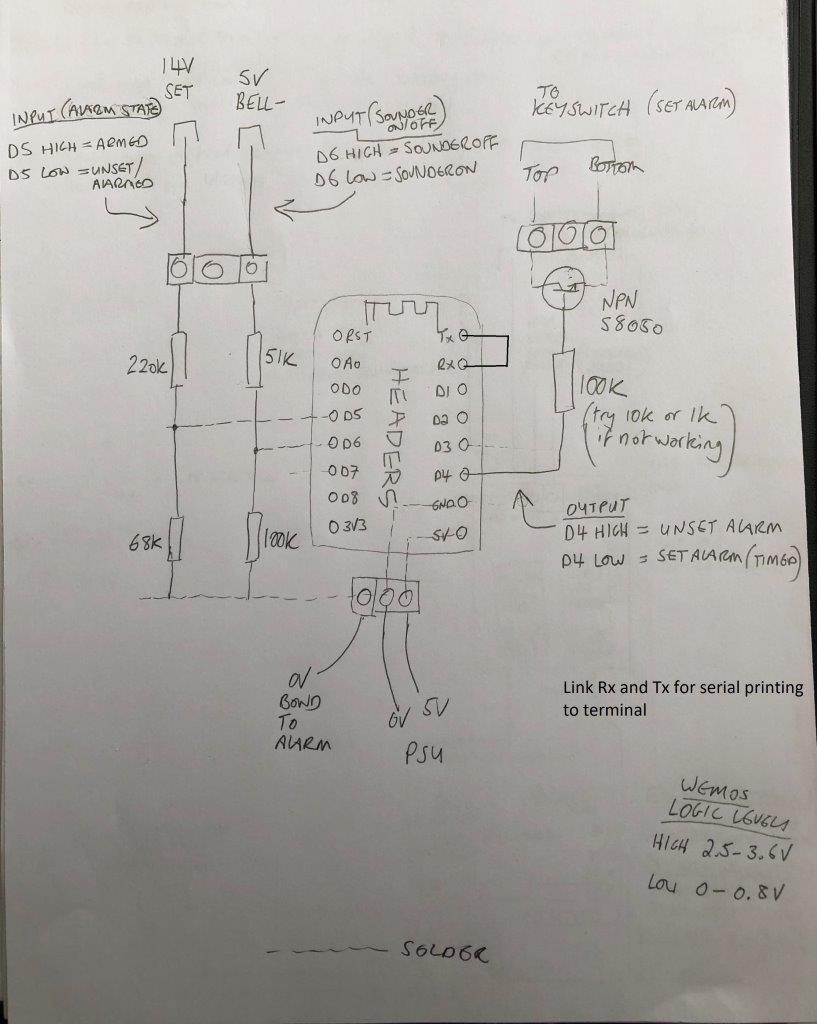 14V
SET
5V
BELL-
INPUT (ALARM STATE)
D5 HIGH = ARMED
D5 LOW = UNSET/
ALARMED
INPUT (SOUNDER
ON/OFF)
D6 HIGH = SOUNDEROFF
D6 LOW = SOUNDERON
TO
KEYSWITCH (SET ALARM)
TOP
BOTTOM
NPN
S8050
220K
51K
RST
A0
D0
D5
D6
D7
D8
3V3
HEADERS
Tx
Rx
D1
D2
D3
D4
GND
5V
100K
(try 10k or 1k
if not working)
68K
100K
OUTPUT
D4 HIGH = UNSET ALARM
D4 LOW = SET ALARM (TIMED)
0V
BOND
TO
ALARM
0V
5V
PSU
Link Rx and Tx for serial printing
to terminal
WEMOS
LOGIC LEVELS
HIGH 2.5-3.6V
LOW 0-0.8V
SOLDER